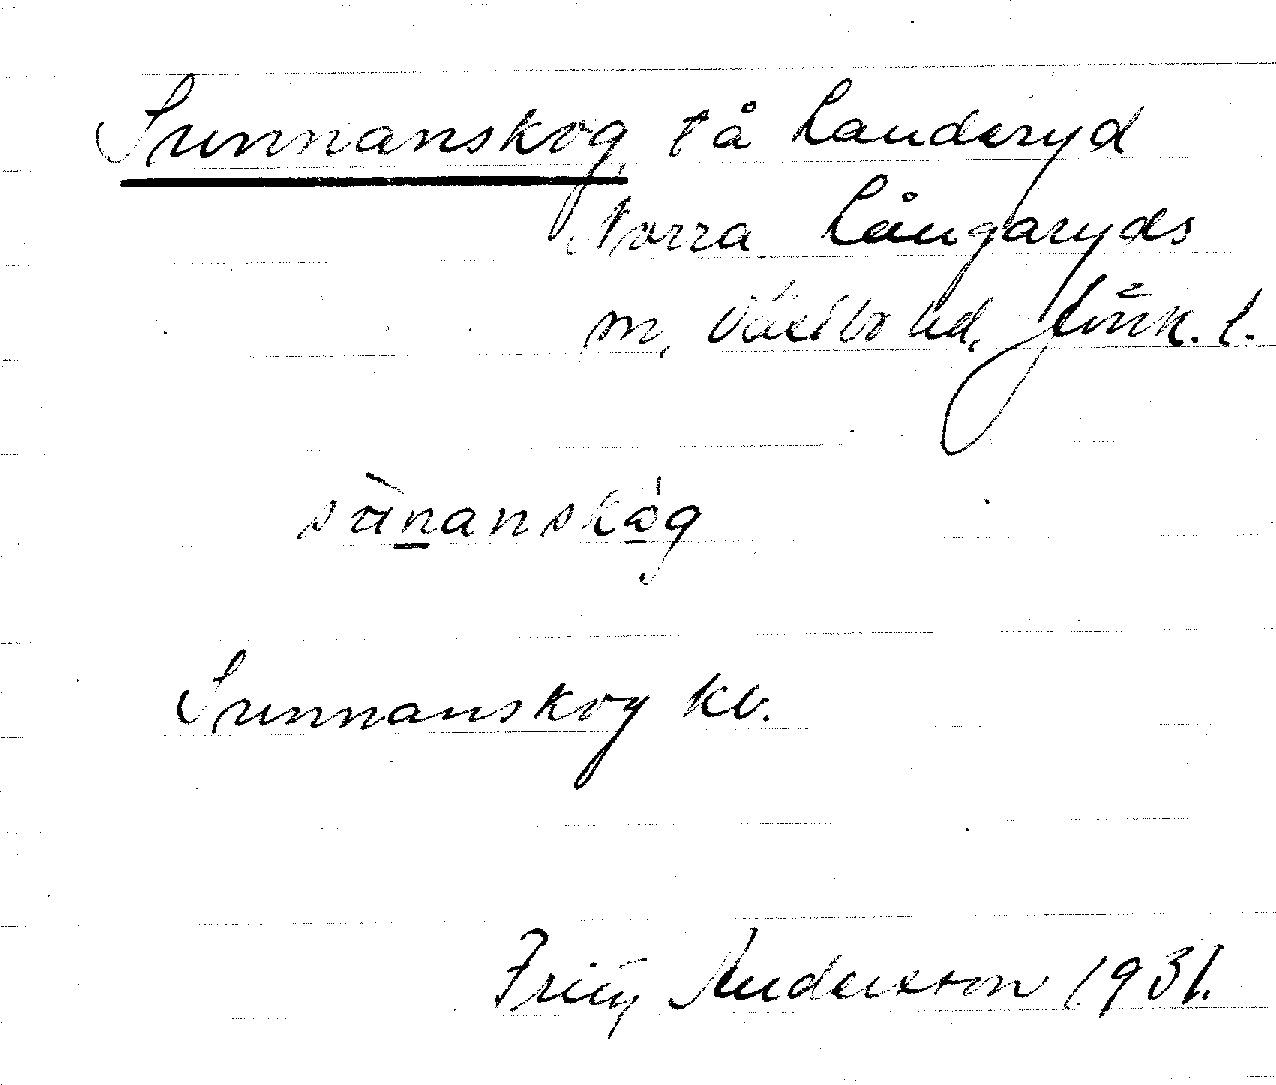 Sunnanskog, tå Landeryd
Norra Långaryds
m, Västbo hd, Jönk. l.
sànanskåg
Sunnanskog kb.
Fritz Anderson 1931.